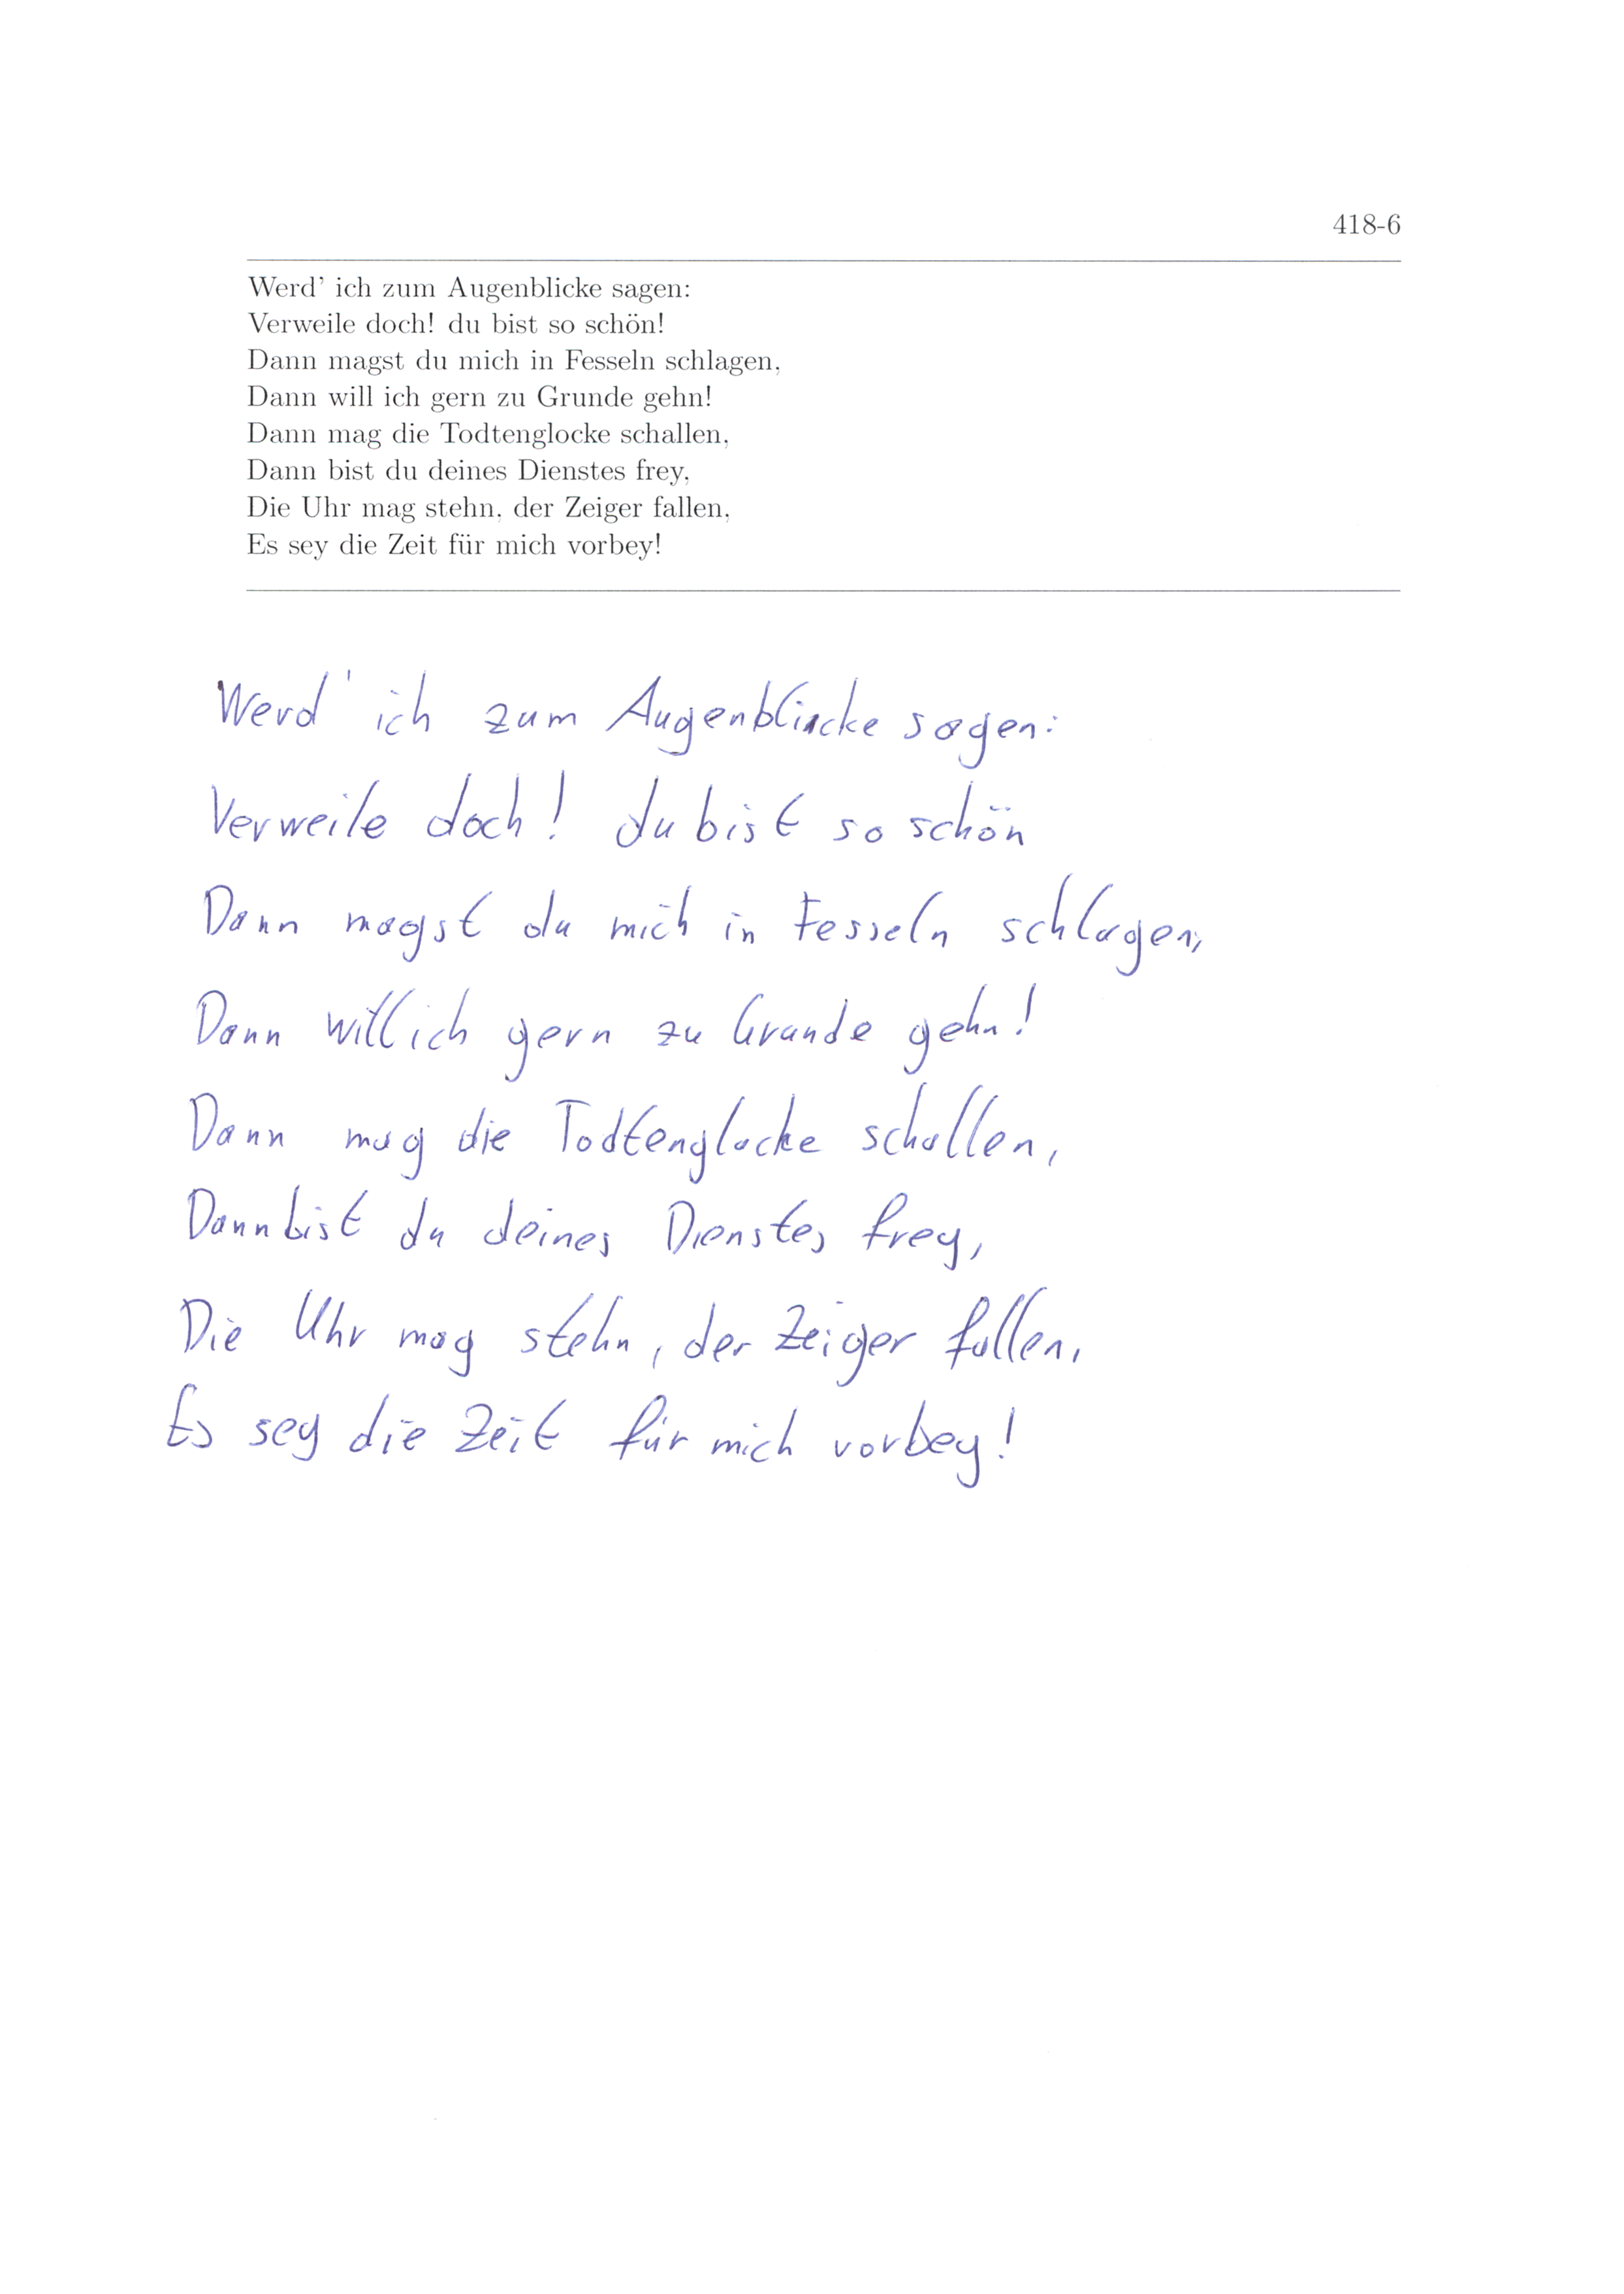 418-6
Werd' ich zum Augenblicke sagen:
Verweile doch! du bist so schön!
Dann magst du mich in Fesseln schlagen,
Dann will ich gern zu Grunde gehn!
Dann mag die Todtenglocke schallen,
Dann bist du deines Dienstes frey,
Die Uhr mag stehn, der Zeiger fallen,
Es sey die Zeit für mich vorbey!
Werd' ich zum Augenblicke sagen:
Verweile doch! du bist so schön
Dann magst du mich in Fesseln schlagen,
Dann will ich gern zu Grunde gehn!
Dann mag die Todtenglocke schallen,
Dann bist du deines Dienstes frey,
Die Uhr mag stehn, der Zeiger fallen,
Es sey die Zeit für mich vorbey!